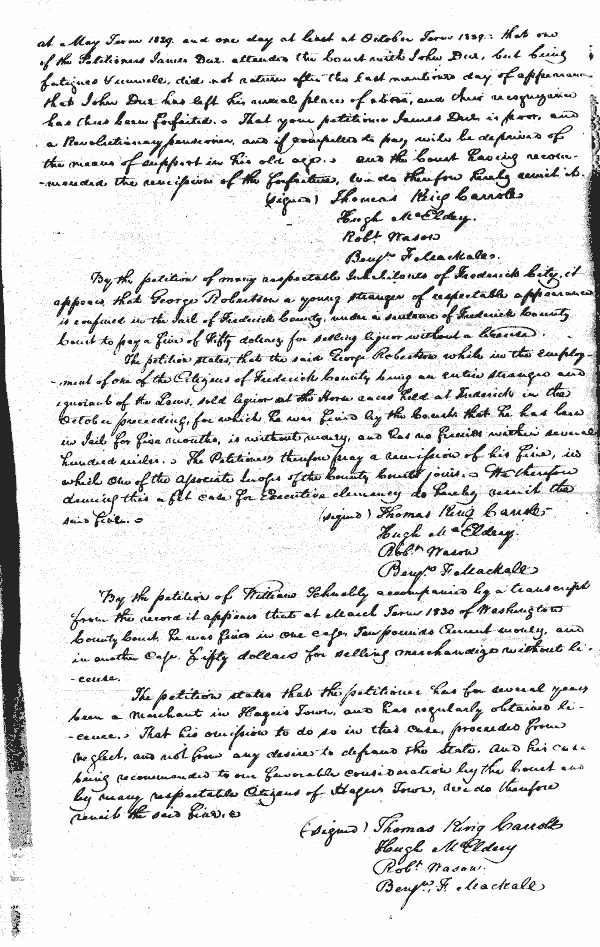 at May Term 1829. and one day at least at October Term 1829: that one
of the Petitioners James Due attended the Court with John Due, but being
fatigued & unwell, did not return after the last mentioned day of appearance
that John Due has left his usual place of abode, and their recognizance
has thus been forfeited. That your petitioner James Due is poor, and
a Revolutionary pensioner, and if compelled to pay, will be deprived of
the means of support in his old age. and the Court having recom-
-mended the remission of the forfeiture, we do therefore hereby remit it.
(signed) Thomas King Carroll
Hugh McEldery.
Robt. Wason
Benjn. F. Mackall.
By the petition of many respectable Inhabitants of Frederick City, it
appears that George Robertson a young stranger of respectable appearance
is confined in the Jail of Frederick County, under a sentence of Frederick County
Court to pay a fine of Fifty dollars for selling liquor without a license.
The petition states, that the said George Robertson while in the employ-
-ment of one of the Citizens of Frederick County being an entire stranger and
ignorant of the Laws, sold liquor at the Horse races held at Frederick in the
October preceeding, for which he was fined by the Court; that he has been
in Jail for five months, is without money, and has no friends within several
hundred miles. The Petitioners therefore pray a remission of his fine, in
which one of the Associate Judges of the County Court joins. We therefore
deeming this a fit case for Executive clemency do hereby remit the
said fine.
(signed) Thomas King Carroll
Hugh McEldery.
Robt. Wason
Benjn. F. Mackall
By the petition of William Schnelly accompanied by a transcript
from the record it appears that at March Term 1830 of Washington
County Court, he was fined in one case, Ten pounds Current money, and
in another Case, Fifty dollars for selling merchandize without li-
-cense.
The petition states that the petitioner has for several years
been a merchant in Hagers Town, and has regularly obtained li-
-cence. That his omission to do so in this case, proceeded from
neglect, and not from any desire to defraud the State. And his case
being recommended to our favorable consideration by the Court and
by many respectable Citizens of Hagers Town, we do therefore
remit the said fine.
(signed) Thomas King Carroll
Hugh McEldery
Robt. Wason.
Benjn. F. Mackall